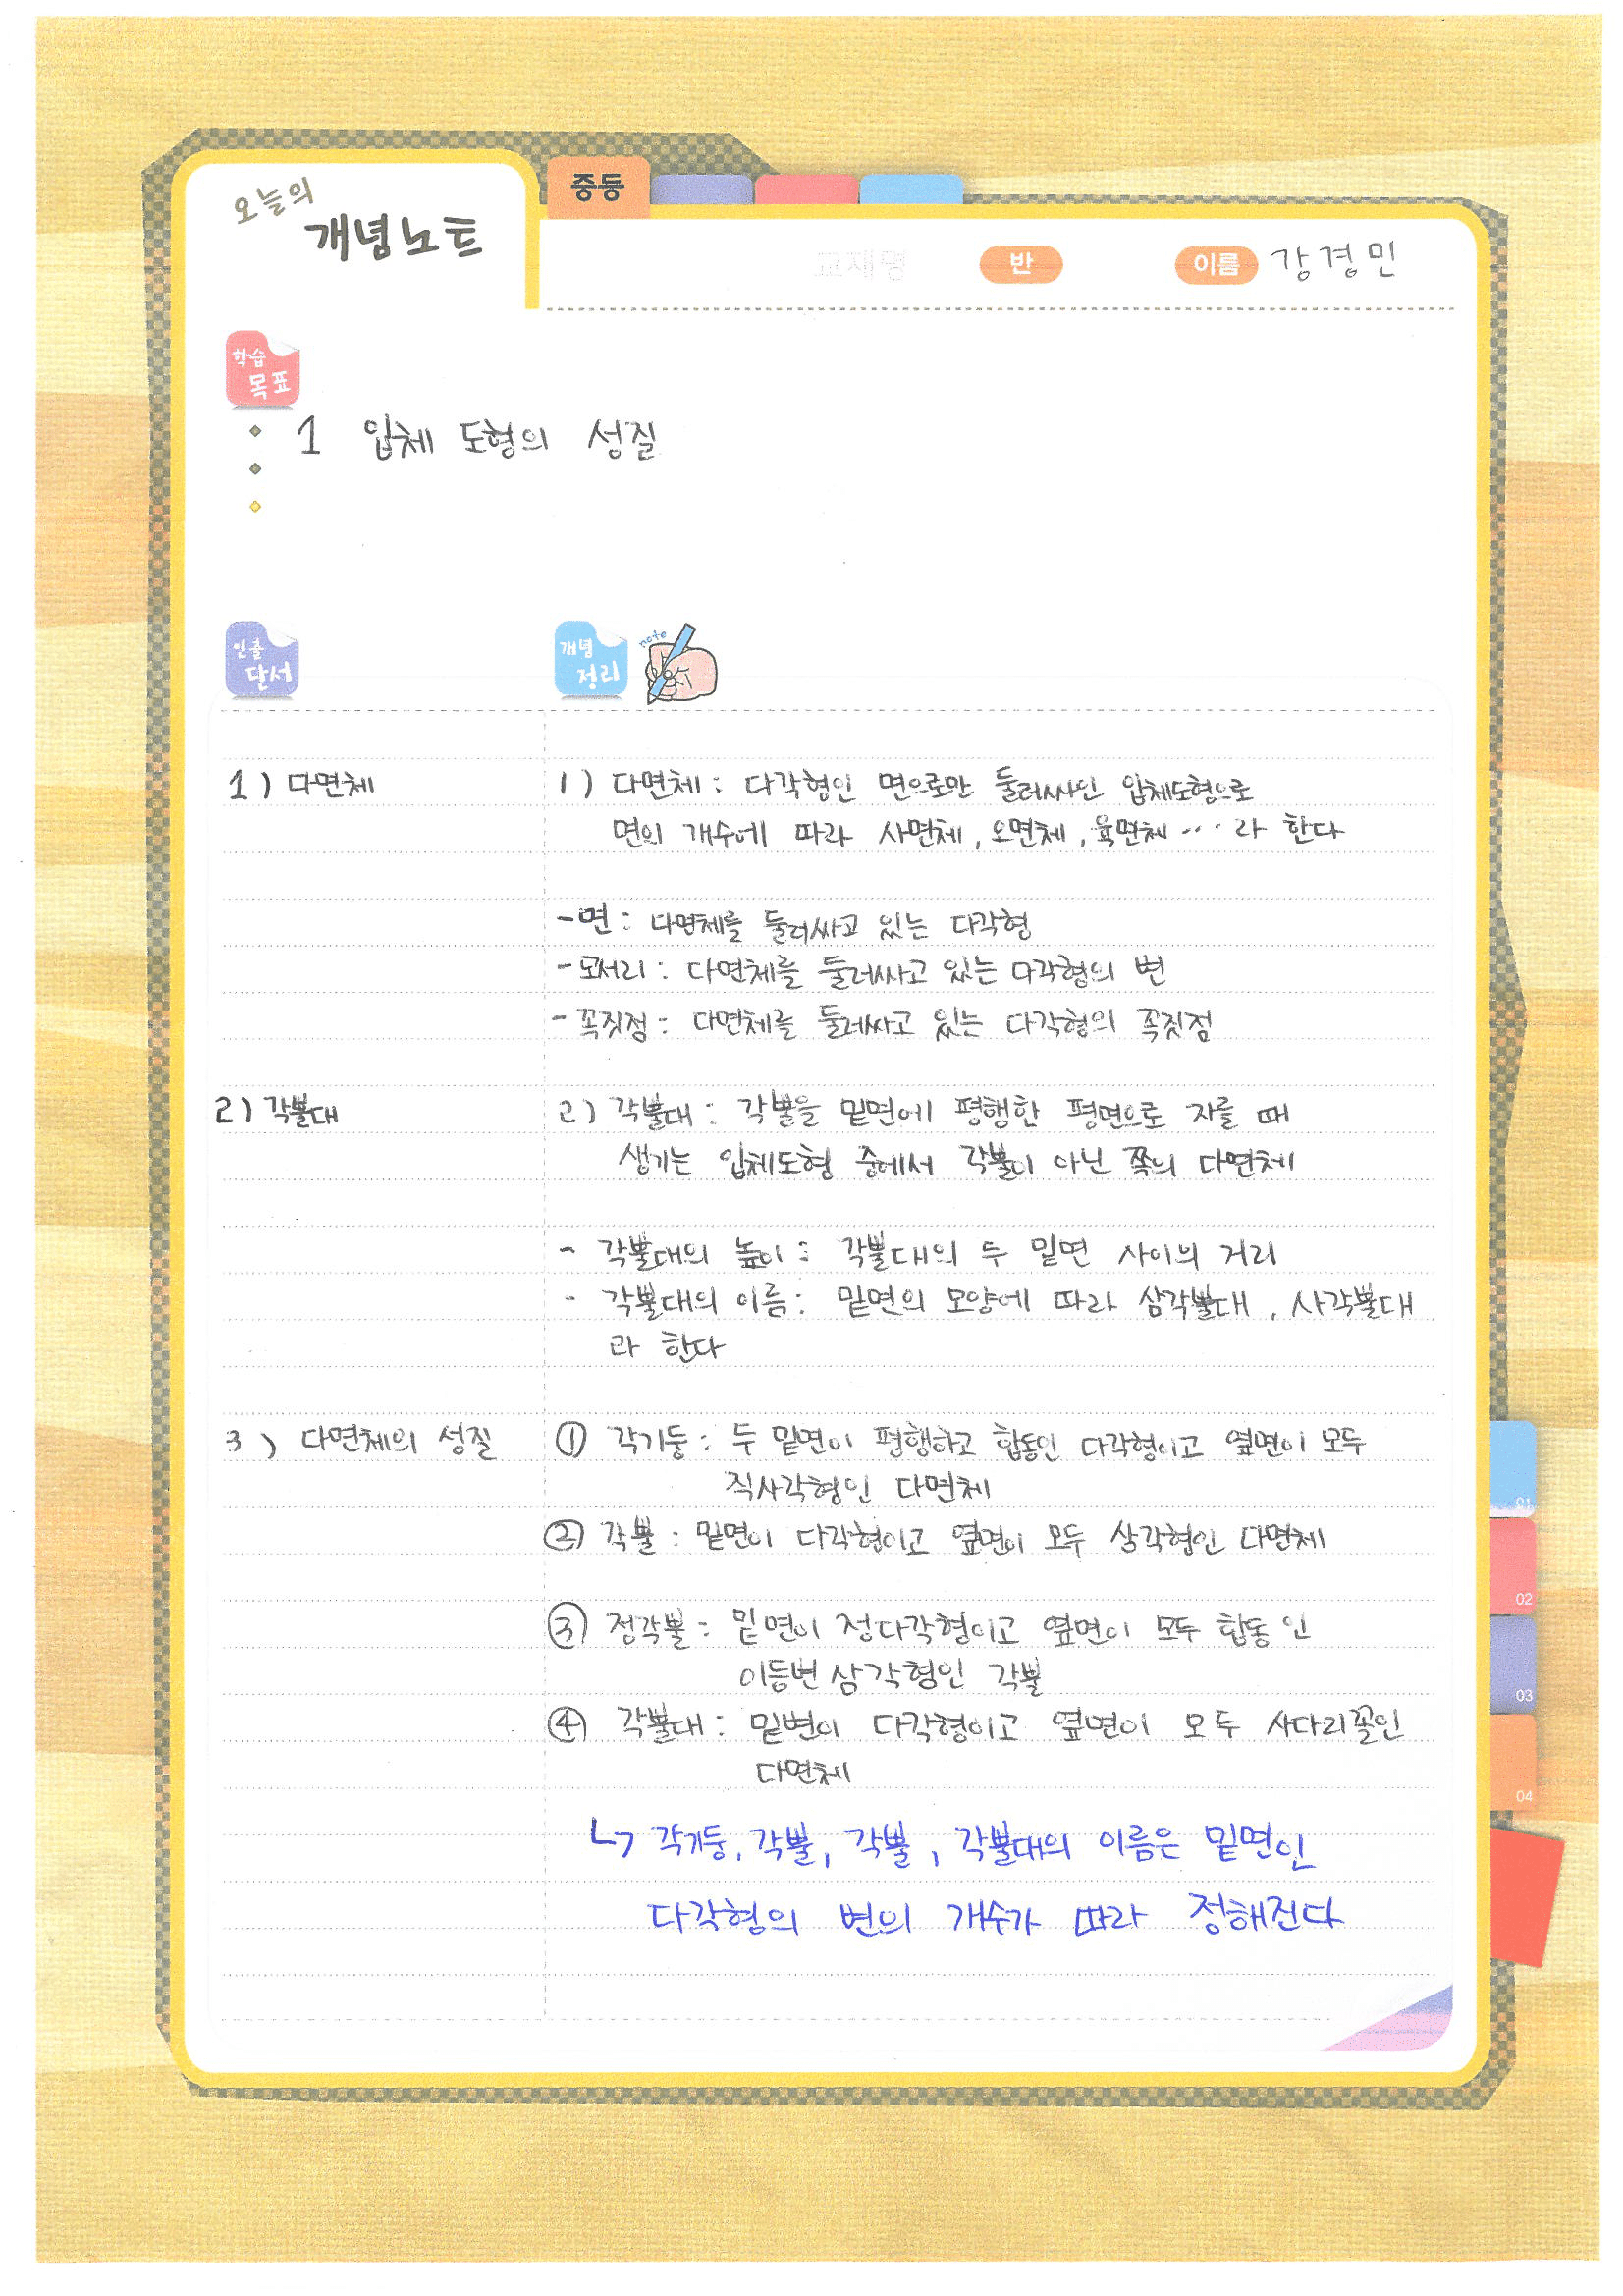 오늘의
개념노트
중등
교재명
반
이름 강경민
학습
목표
1 입체 도형의 성질
인출
단서
개념
정리
note
1) 다면체
1) 다면체 : 다각형인 면으로만 둘러싸인 입체도형으로
면의 개수에 따라 사면체, 오면체, 육면체 … 라 한다
- 면 : 다면체를 둘러싸고 있는 다각형
- 모서리 : 다면체를 둘러싸고 있는 다각형의 변
- 꼭짓점 : 다면체를 둘러싸고 있는 다각형의 꼭짓점
2) 각뿔대
2) 각뿔대 : 각뿔을 밑면에 평행한 평면으로 자를 때
생기는 입체도형 중에서 각뿔이 아닌 쪽의 다면체
- 각뿔대의 높이 : 각뿔대의 두 밑면 사이의 거리
- 각뿔대의 이름 : 밑면의 모양에 따라 삼각뿔대, 사각뿔대
라 한다
3) 다면체의 성질
① 각기둥 : 두 밑면이 평행하고 합동인 다각형이고 옆면이 모두
직사각형인 다면체
② 각뿔 : 밑면이 다각형이고 옆면이 모두 삼각형인 다면체
③ 정각뿔 : 밑면이 정다각형이고 옆면이 모두 합동인
이등변 삼각형인 각뿔
④ 각뿔대 : 밑변이 다각형이고 옆면이 모두 사다리꼴인
다면체
↳ 각기둥, 각뿔, 각뿔, 각뿔대의 이름은 밑면인
다각형의 변의 개수가 따라 정해진다
01
02
03
04